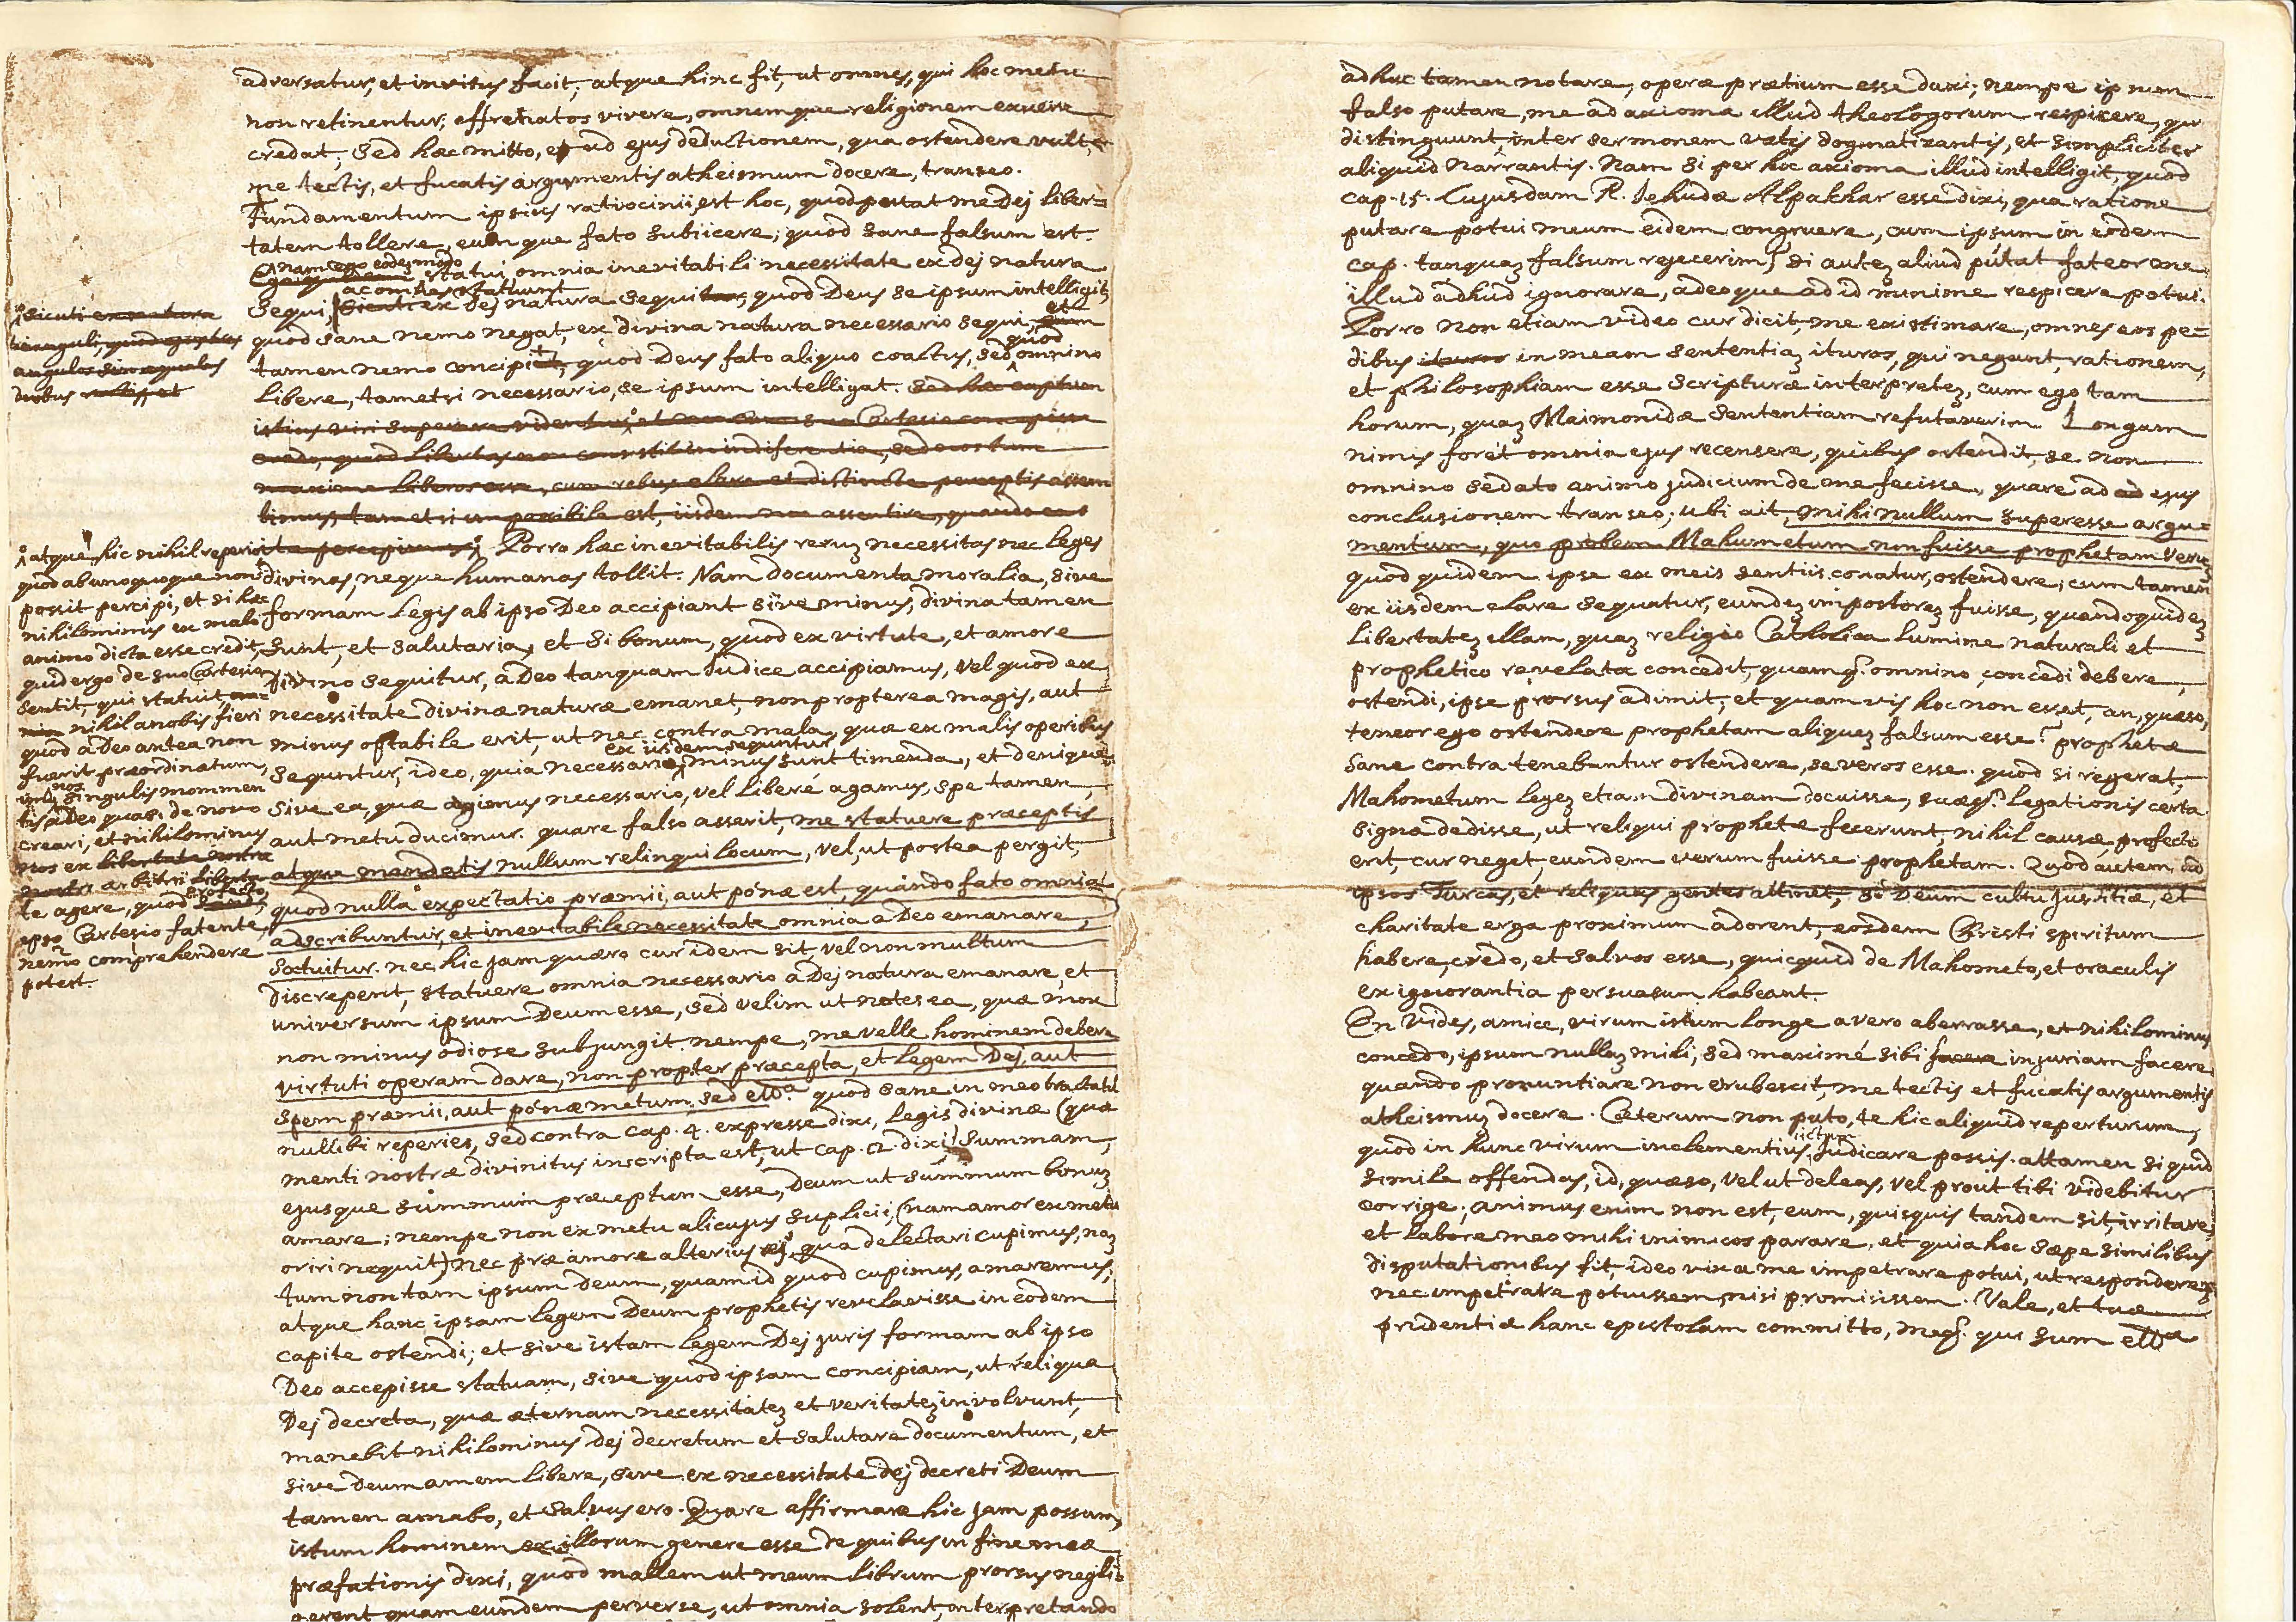 adversatur, et invitus facit, atque hinc fit, ut omnes, qui hoc metu
non retinentur, effrenatos vivere, omnemque religionem exuere
credat; sed hæc mitto, et ad ejus deductionem, qua ostendere vult,
me tectis, et fucatis argumentis atheismum docere, transeo.
Fundamentum ipsius ratiocinii est hoc, quod putat me Dej liber=
tatem tollere, eumque fato subiicere; quod sane falsum est.
nam ego eodem modo
statui omnia inevitabili necessitate ex dej natura
ac omnes statuunt
sequi, sicuti ex Dej natura sequitur, quod Deus se ipsum intelligit
quod sane nemo negat, ex divina natura necessario sequi, et
tamen nemo concipit, quod Deus fato aliquo coactus, sed quod omnino
libere, tametsi necessario, se ipsum intelligat. sed hæc captum
istius viri superare videntur
credo, quod libertas non consistit in indiferentia, sed nos tum
maxime liberos esse, cum rebus clare et distincte perceptis assen
timus, tametsi impossibile est, iisdem non assentire, quando eas
ita percipimus; Porro hæc inevitabilis rerum necessitas nec leges
divinas, neque humanas tollit. Nam documenta moralia, sive
formam legis ab ipso Deo accipiant sive minus, divina tamen
sunt, et salutaria, et si bonum, quod ex virtute, et amore
divino sequitur, a Deo tanquam Iudice accipiamus, vel quod ex
necessitate divinæ naturæ emanet, non propterea magis, aut
minus optabile erit, ut nec contra mala, quæ ex malis operibus
ex iisdem seguntur
seguntur, ideo, quia necessario minus sunt timenda, et denique
sive ea, quæ agimus necessario, vel liberé agamus, spe tamen,
aut metu ducimur. quare falso asserit, me statuere præceptis
atque mandatis nullum relinqui locum, vel, ut postea pergit,
quod nulla expectatio præmii, aut pónæ est, quando fato omnia
adscribuntur, et inevitabile necessitate omnia a Deo emanare
statuitur. nec hic jam quæro cur idem sit, vel non multum
discreperit, statuere omnia necessario a Dej natura emanare, et
universum ipsum Deum esse, sed velim ut notes ea, quæ mox
non minus odiose subjungit. nempe, me velle hominem debere
virtuti operam dare, non propter præcepta, et legem Dej, aut
spem præmii, aut pónæ metum, sed etc.ª quod sane in meo tractatu
nullibi reperies, sed contra cap. 4. expresse dixi, legis divinæ (quæ
menti nostræ divinitus inscripta est, ut cap. 12. dixi) summam,
ejusque summum præceptum esse, Deum ut summum bonum
amare; nempe non ex metu alicujus suplicii, (nam amor ex metu
oriri nequit) nec præ amore alterius rej, qua delectari cupimus, nam
tum non tam ipsum deum, quam id quod cupimus, amaremus;
atque hanc ipsam legem Deum prophetis revelavisse in eodem
capite ostendi; et sive istam legem Dej juris formam ab ipso
Deo accepisse statuam, sive quod ipsam concipiam, ut reliqua
Dej decreta, quæ æternam necessitatem et veritatem involvunt,
manebit nihilominus Dej decretum et salutare documentum, et
sive deum amem libere, sive ex necessitate dej decreti Deum
tamen amabo, et salvus ero. Quare affirmare hic jam possum,
istum hominem ex illorum genere esse de quibus in fine meæ
præfationis dixi, quod mallem ut meum librum prorsus negli=
gerent quam eundem perverse, ut omnia solent, interpretando
sicuti ex natura
trianguli, quod ejus tres
angulos sint æquales
duobus rectis, et
atque hic nihil reperio
quod ab unoquoque non
possit percipi, et si hæc
nihilominus ex malo
animo dicta esse credit,
quid ergo de suo Cartesio
sentit, qui statuit,
nihil a nobis fieri
quod a Deo antea non
fuerit præordinatum,
imo nos singulis momen
tis a Deo quasi de novo
creari, et nihilominus
nos ex libertate nostra
nostri arbitrii liberta
te agere, quod profecto,
ipso Cartesio fatente,
nemo comprehendere
potest.
adhuc tamen notare, operæ prætium esse duxi; nempe ipsum
falso putare, me ad axioma illud theologorum respicere, qui
distinguunt, inter sermonem vatis dogmatizantis, et simpliciter
aliquid narrantis. Nam si per hoc axioma illud intelligit, quod
cap. 15. Cujusdam R. Jehudæ Alpakhar esse dixi, qua ratione
putare potui meum eidem congruere, cum ipsum in eodem
cap. tanquam falsum rejecerim? si autem aliud putat fateor me
illud adhuc ignorare, adeoque ad id minime respicere potui.
Porro non etiam video cur dicit, me existimare, omnes eos pe=
dibus ituros in meam sententiam ituros, qui negant, rationem,
et philosophiam esse scripturæ interpretem, cum ego tam
horum, quam Maimonidæ sententiam refutaverim. Longum
nimis foret omnia ejus recensere, quibus ostendit, se non
omnino sedato animo judicium de me fecisse, quare ad ad ejus
conclusionem transeo; ubi ait, mihi nullum superesse argu=
mentum, quo probem Mahumetum non fuisse prophetam verum
quod quidem ipse ex meis sentiis conatur, ostendere; cum tamen
ex iisdem clare sequatur, eundem impostorem fuisse, quandoquidem
libertatem illam, quam religio Catholica lumine naturali et
prophetico revelata concedit, quamq. omnino concedi debere,
ostendi, ipse prorsus adimit, et quamvis hoc non esset, an, quæso,
teneor ego ostendere prophetam aliquem falsum esse? prophetæ
sane contra tenebantur ostendere, se veros esse. quod si regerat,
Mahometum legem etiam divinam docuisse, suæq. legationis certa
signa dedisse, ut reliqui prophetæ fecerunt, nihil causæ profecto
erit, cur neget, eundem verum fuisse prophetam. Quod autem ad
ipsos Turcas, et reliquas gentes attinet, si Deum cultu justitiæ, et
charitate erga proximum adorent, eosdem Christi spiritum
habere, credo, et salvos esse, quicquid de Mahometo, et oraculis
ex ignorantia persuasum habeant.
En vides, amice, virum istum longe a vero aberrasse, et nihilominus
concedo, ipsum nullam mihi, sed maximé sibi facere injuriam facere
quando pronuntiare non erubescit, me tectis et fucatis argumentis
atheismum docere. Cæterum non puto, te hic aliquid reperturum,
quod in hunc virum inclementius dictum judicare possis. attamen si quid
simile offendas, id, quæso, vel ut deleas, vel prout tibi videbitur
corrige; animus enim non est, eum, quisquis tandem sit, irritare,
et labore meo mihi inimicos parare, et quia hoc sæpe similibus
disputationibus fit, ideo vix a me impetrare potui, ut responderem
nec impetrare potuissem, nisi promisissem. Vale, et tuæ
prudentiæ hanc epistolam committo, meq. qui sum etc.ª